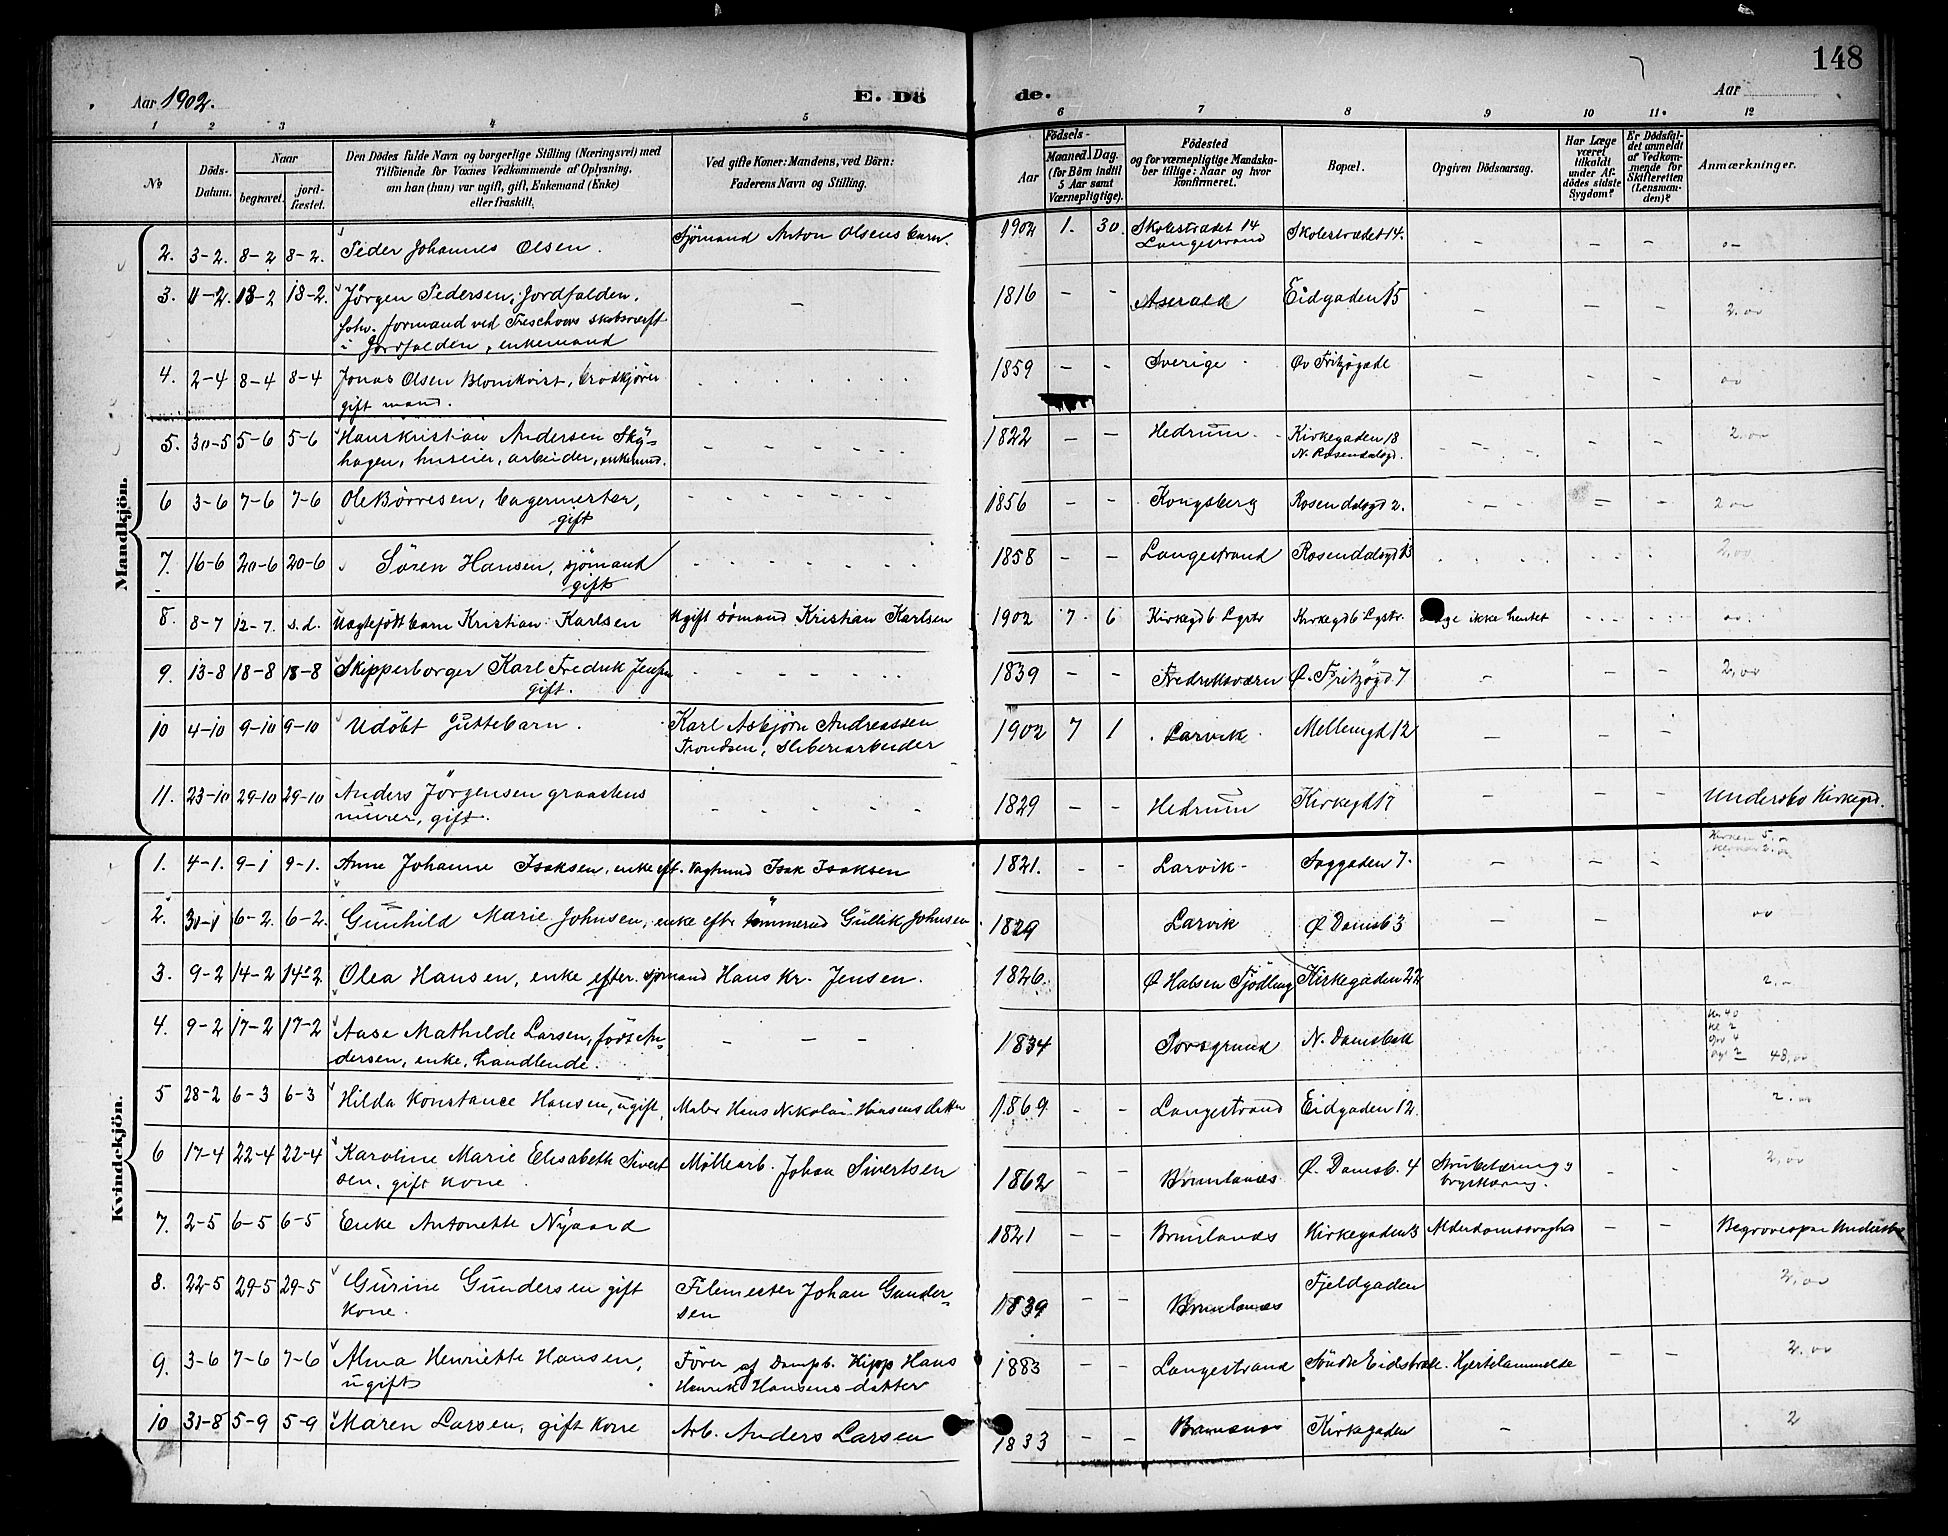 148
Aar 1902.
E. Dö
de.
Aar
1 2 3 4 5 6 7 8 9 10 11. 12
No
Döds-
Datum.
Naar
begravet.
jord-
fæstet.
Den Dödes fulde Navn og borgerlige Stilling (Næringsvei) med
Tilföiende for Voxnes Vedkommende af Oplysning,
om han (hun) var ugift, gift, Enkemand (Enke)
eller fraskilt.
Ved gifte Koner: Mandens, ved Börn:
Faderens Navn og Stilling.
Födsels-
Aar
Maaned. Dag.
(for Börn indtil
5 Aar samt
Værnepligtige).
Födested
og for værnepligtige Mandska-
ber tillige: Naar og hvor
konfirmeret.
Bopæl.
Opgiven Dödsaarsag.
Har Læge
været
tilkaldt
under Af-
dödes sidste
Sygdom?
Er Dödsfal-
det anmeldt
af Vedkom-
mende for
Skifteretten
(Lensman-
den)?
Anmærkninger.
Mandkjön.
2. 3-2. 8-2 8-2. Peder Johannes Olsen. Sjömand Anton Olsens barn. 1902 1. 30. Skolestrædet 14 Langestrand Skolestrædet 14. - - -
3. 11-2. 18-2 18-2. Jörgen Pedersen, Jordfalden,
forhv. formand ved Treschows skibsverft
i Jordfalden, enkemand - 1816 - - Eidgaden 15 - - - 2.00
4. 2-4 8-4 8-4 Jonas Olsen Blomkvist, brodkjörer
gift mand. 1859 - - Sverige Öv Fritzögade - - - 00
5. 30-5 5-6 5-6 Hans Kristian Andersen Sky-
hagen, huseier, arbeider, enkemnd. 1822 - - Hedrum. Kirkegaden 18
N. Rosendalsgd. - - - 2.00
6 3-6 7-6 7-6 Ole Börresen, bagermester,
gift 1856 - - Kongsberg Rosendalsgd 2. - - - 2 00
7. 16-6 20-6 20-6 Sören Hansen, sjömand
gift 1858 - - Langestrand Rosendalsgd 13 2,00
8. 8-7 12-7. s.d. Uægtefödt barn Kristian Karlsen Ugift sömand Kristian Karlsen 1902 7 6 Kirkegd 6 Lgstr Kirkegd 6 Lgstr. ikke hentet 00
9. 13-8 18-8 18-8 Skipperborger Karl Fredrik Jensen
gift. 1839 - - Fredriksværn Ö. Fritzögd 7 - - - 2,00
10 4-10 9-10 9-10 Udöbt guttebarn. Karl Asbjörn Andreassen
Trondsen, sliberiarbeider 1902 7 1 Larvik Mellemgd 12 - - -
11. 23-10 29-10 29-10 Anders Jörgensen graastens
murer, gift. 1829 - - Hedrum Kirkegd 17 - - - Undersbo Kirkegrd.
Kvindekjön.
1. 4-1. 9-1 9-1. Anne Johanne Isaksen, enke eft. Vagtmnd Isak Isaksen 1821. - - Larvik - Saggaden 7. - - -
2. 30-1 6-2. 6-2. Gunhild Marie Johnsen, enke efter tömmermd Gullik Johnsen 1829 Larvik Ø Damsb 3 - - 00
3. 9-2 14-2 14-2 Olea Hansen, enke efter sjömand Hans Kr. Jensen. 1826. Kirkegaden 22 2.-
4. 9-2 17-2 17-2 Aase Mathilde Larsen, födt An-
dersen, enke, handlende. - - - 1834 Porsgrund N. Damsbak 48,00
5 28-2 6-3 6-3 Hilda Konstance Hansen, ugift, Maler Hans Nikolai Hansens datter 1869. - - Langestrand Eidgaden 12. 2.00
6 17-4 22-4 22-4 Karoline Marie Elisabeth Sivert
sen, gift kone Møllearb. Johan Sivertsen 1862 - - Brunlanæs Ø. Damsb. 4 Strubetæring og
brysttæring. - - 2,00
7. 2-5 6-5 6-5 Enke Antonette Nygaard 1821 - - Brunlanæs Kirkegaden 3 Alderdomssvaghed - - Begravespaa Undersbo
8. 22-5 29-5 29-5 Gurine Gundersen gift
kone. Filemester Johan Gunder-
sen 1839 - - Brunlanæs Fjeldgaden 2,00
9. 3-6 7-6 7-6 Alma Henriette Hansen,
ugift Förer af Dampb. Kipp Hans
Henrik Hansens datter 1883 - - Langestrand Söndre Eidstræde. Hjertelammelse - - 2.00
10 31-8 5-9 5-9 Maren Larsen, gift kone Arb. Anders Larsen 1833 - - Kirkegaden - 2